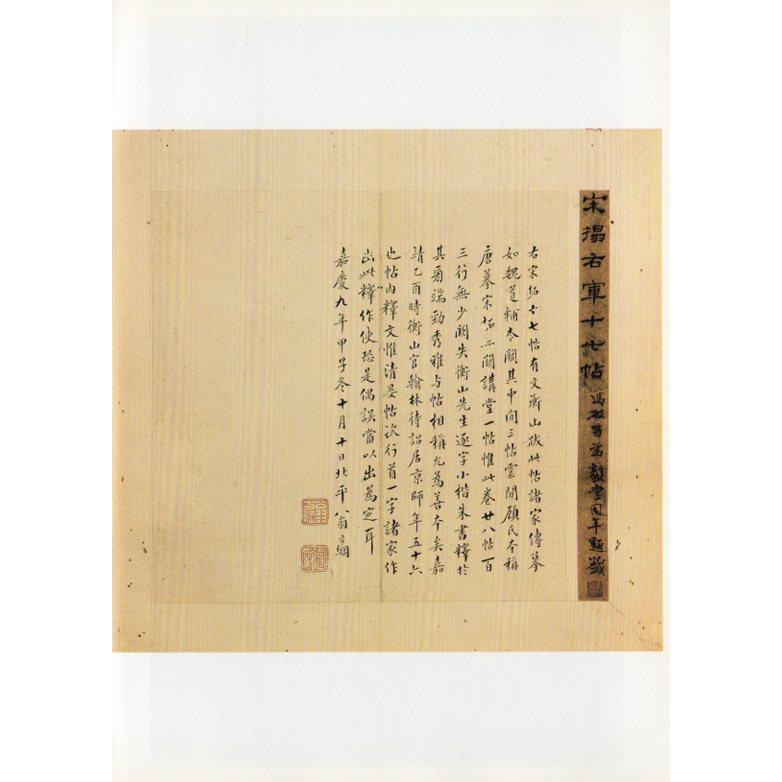 宋搨右軍十七帖 馮敏昌為毅堂同年題籤
右宋拓十七帖有文衡山跋此帖諸家傳摹
如魏道輔本闕其中間三帖雲間顧氏本稱
唐摹宋拓亦闕講堂一帖惟此卷廿八帖一百
三行無少闕失衡山先生逐字小楷朱書釋於
其旁端勁秀雅与帖相稱允為善本矣嘉
靖乙酉時衡山官翰林待詔居京師年五十六
也帖內釋文惟清晏帖次行首一字諸家作
出此釋作使恐是偶誤當以出為定耳
嘉慶九年甲子冬十月十日北平翁方綱